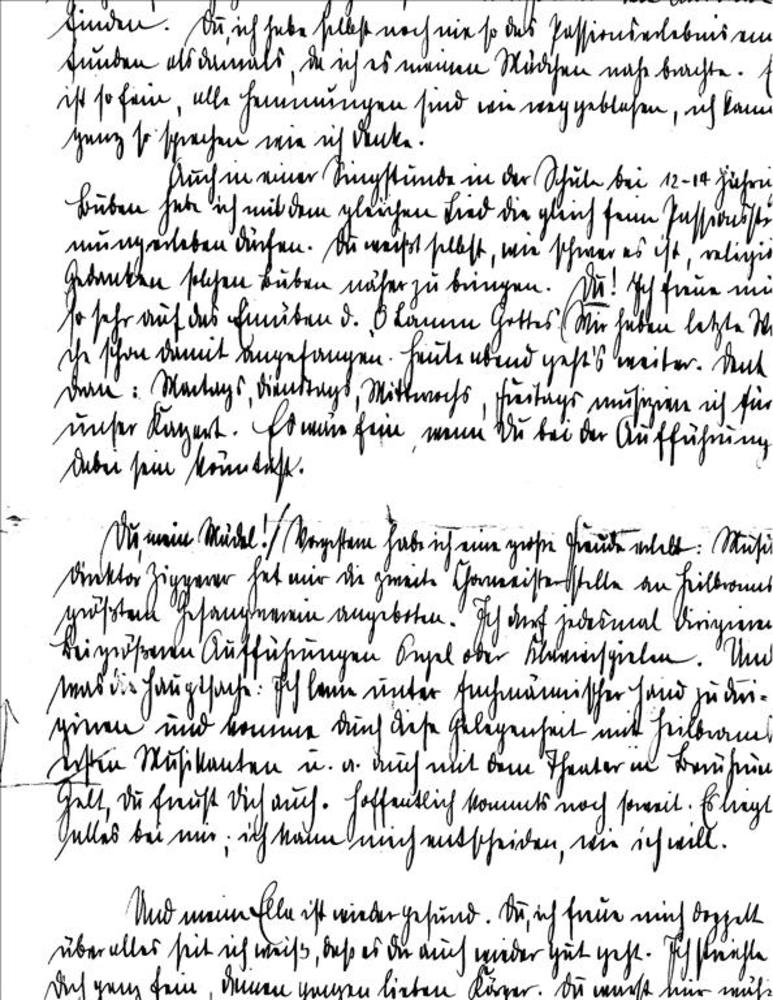 finden. Du, ich habe selbst noch nie so das Passionserlebnis em
funden als damals, da ich es meinen Mädchen nahe brachte. E
ist so fein, alle Hemmungen sind wie weggeblasen, ich kann
ganz so sprechen wie ich denke.
Auch in einer Singstunde in der Schule bei 12-14 jähri
Buben habe ich mit dem gleichen Lied die gleich feine Passionssti
mung erleben dürfen. Du weißt selbst, wie schwer es ist, religiö
Gedanken solchen Buben näher zu bringen. Du! Ich freue mi
so sehr auf das Einüben d. "O Lamm Gottes" (Wir haben letzte Wo
che schon damit angefangen. Heute abend geht's weiter. Denk
dran: Montags, Dienstags, Mittwochs, Freitags musiziere ich für
unser Konzert. Es wäre fein, wenn Du bei der Aufführung
dabei sein könntest.
Du, mein Mädel! / Vorgestern habe ich eine große Freude erlebt: Musi
direktor Ziggerer hat mir die zweite Chormeisterstelle an Heilbronns
größtem Gesangverein angeboten. Ich darf jedesmal dirigieren
bei größeren Aufführungen Orgel oder Klavier spielen. Und
was die Hauptsache: Ich lerne unter fachmännischer Hand zu diri-
gieren und komme durch diese Gelegenheit mit Heilbronns
ersten Musikanten u. a. auch mit dem Theater in Berührun
Gelt, Du freust Dich auch. Hoffentlich kommts noch soweit. Es liegt
alles bei mir; ich kann mich entscheiden, wie ich will.
Und meine Ella ist wieder gesund. Du, ich freue mich doppelt
über alles seit ich weiß, daß es Dir auch wieder gut geht. Ich streichle
Dich ganz fein, Deinen ganzen lieben Körper. Du warst nur